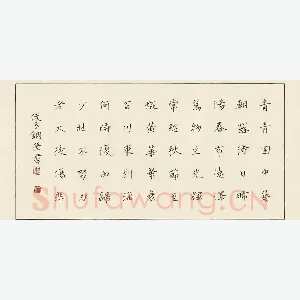 青青園中葵
朝露待日晞
陽春布德澤
萬物生光輝
常恐秋節至
焜黃華葉衰
百川東到海
何時復西歸
少壯不努力
老大徒傷悲
Shufawang.cn